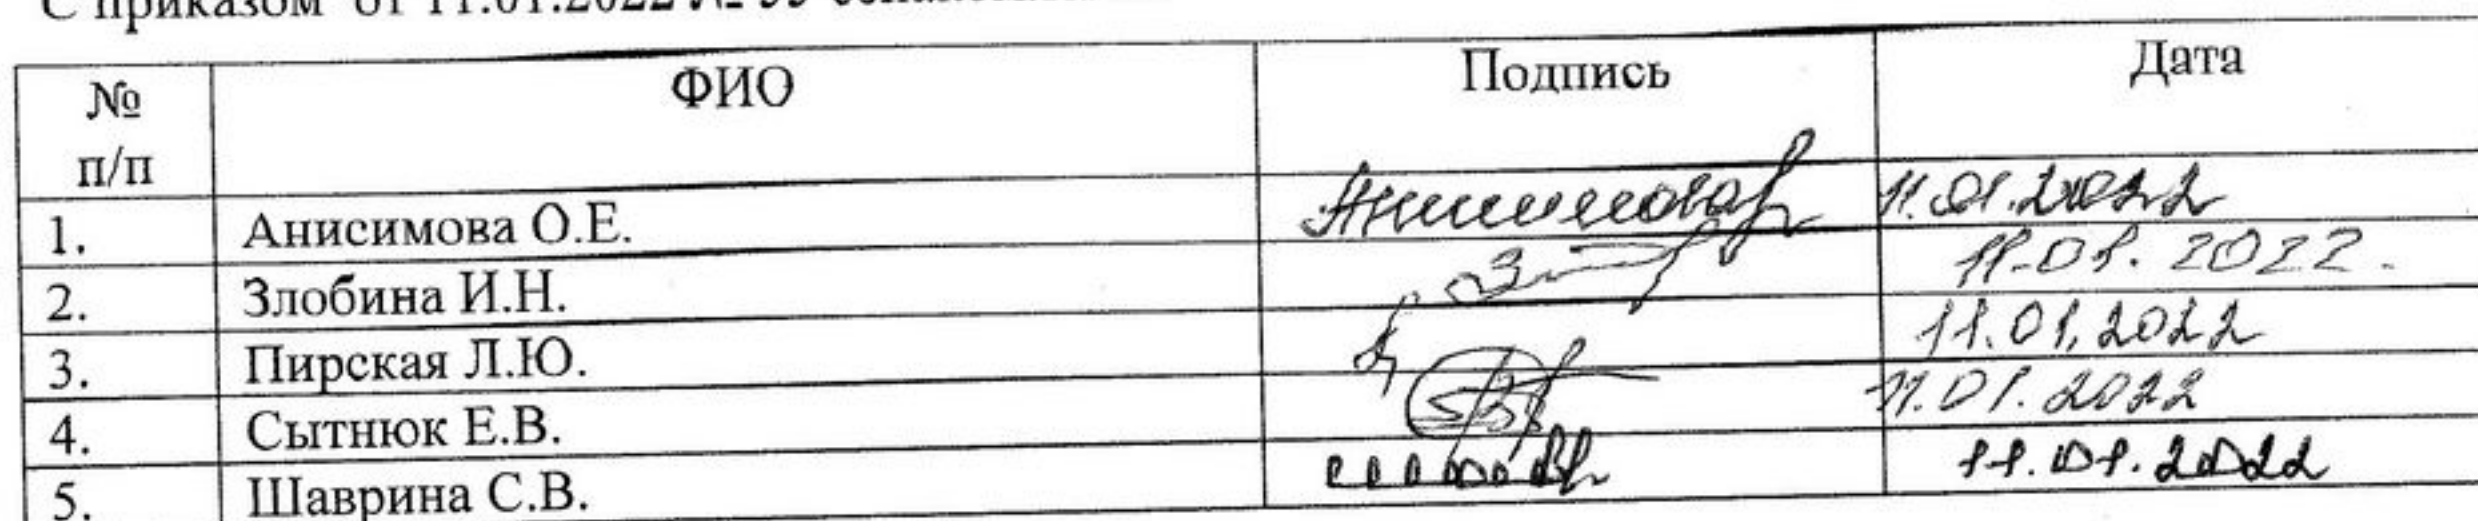 С приказом от 11.01.2022 №
№ п/п ФИО Подпись Дата
1. Анисимова О.Е. Анисимова 11.01.2022
2. Злобина И.Н. 11.01.2022.
3. Пирская Л.Ю. 11.01.2022
4. Сытнюк Е.В. 11.01.2022
5. Шаврина С.В. 11.01.2022